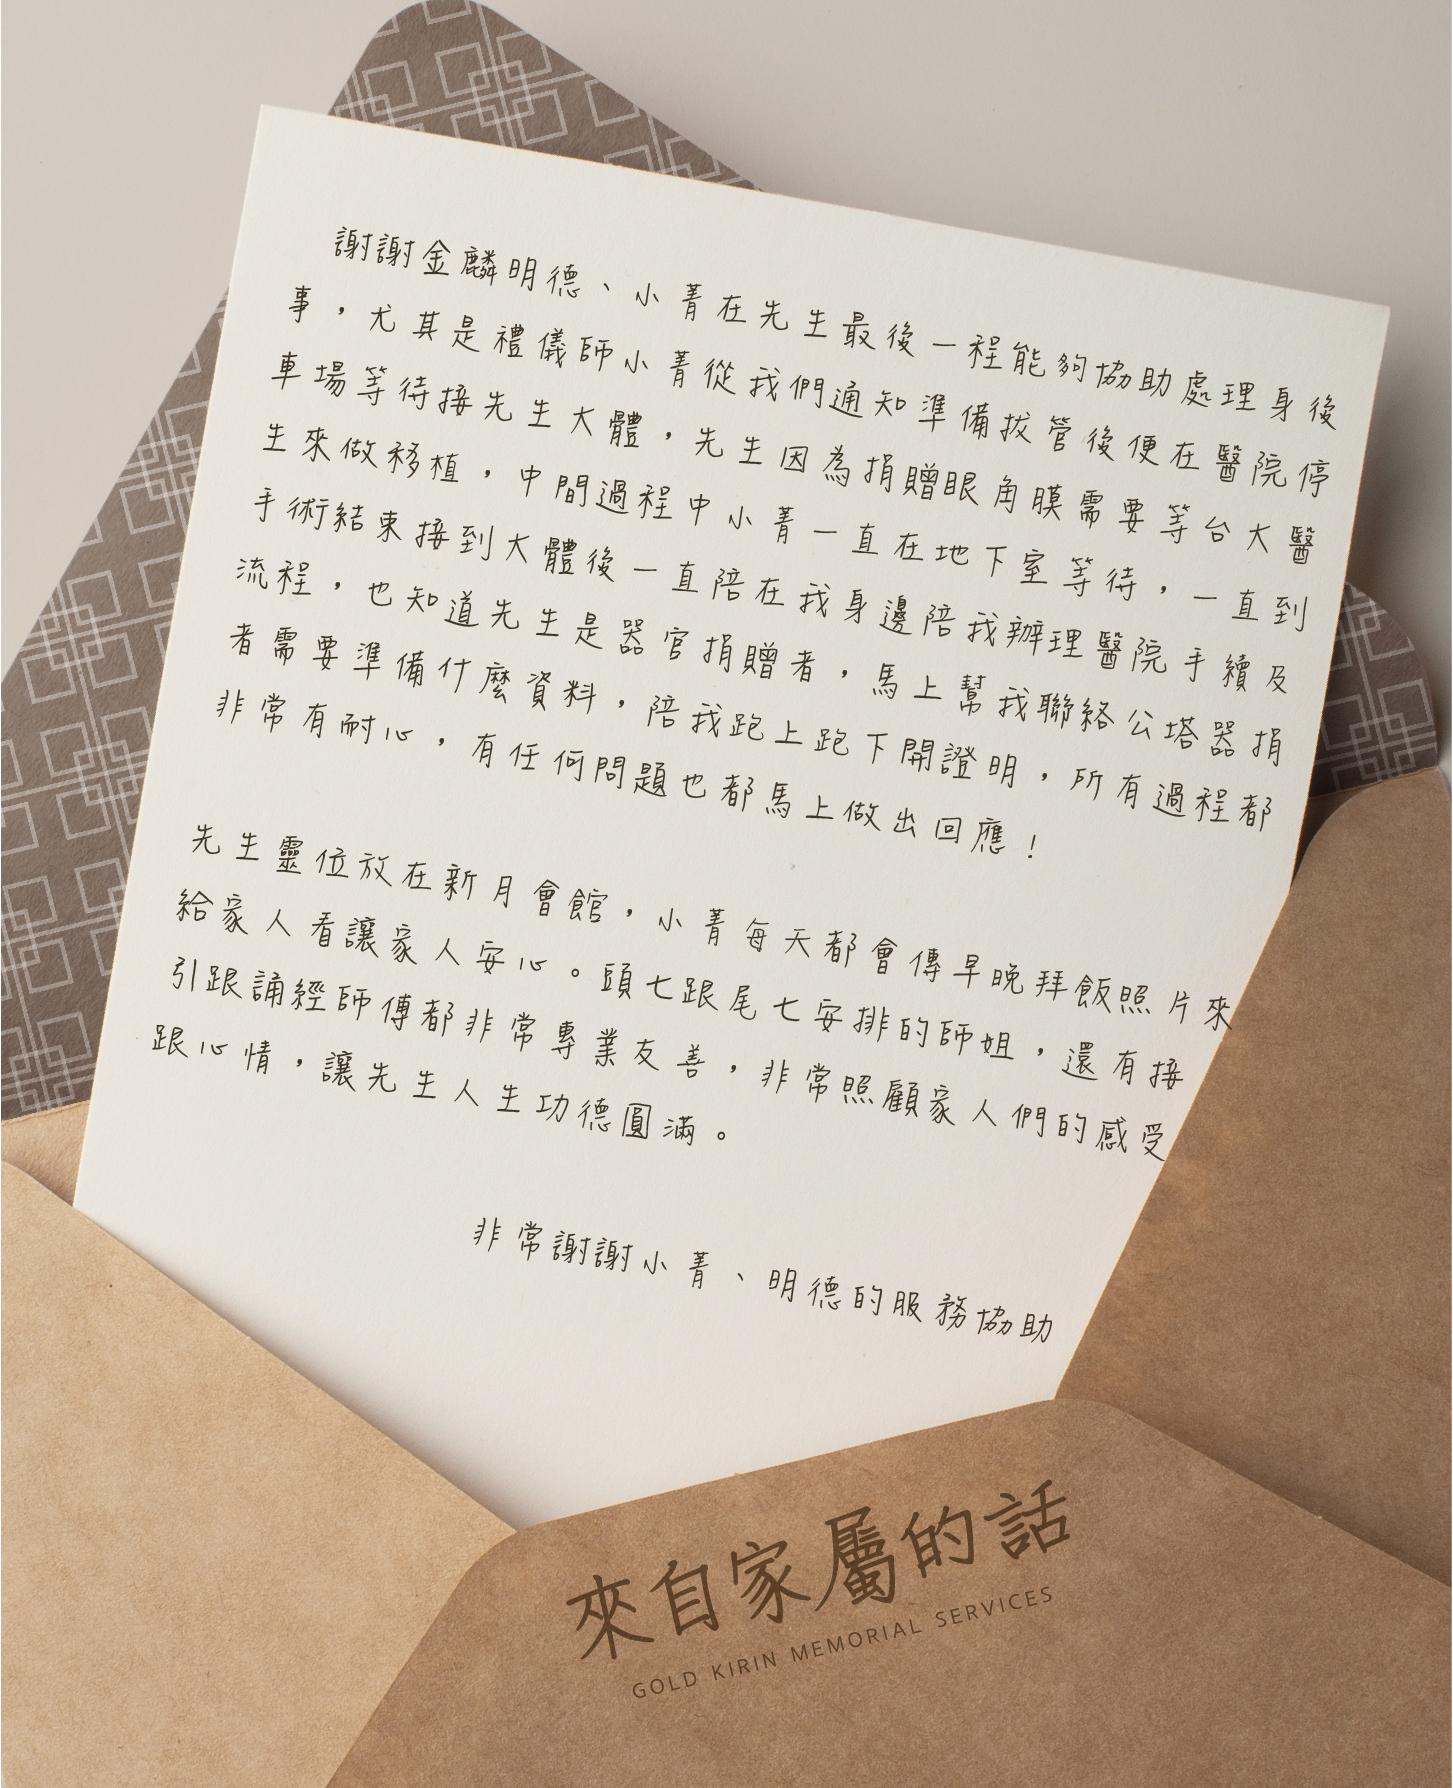 謝謝金麟明德、小菁在先生最後一程能夠協助處理身後
事，尤其是禮儀師小菁從我們通知準備拔管後便在醫院停
車場等待接先生大體，先生因為捐贈眼角膜需要等台大醫
生來做移植，中間過程中小菁一直在地下室等待，一直到
手術結束接到大體後一直陪在我身邊陪我辦理醫院手續及
流程，也知道先生是器官捐贈者，馬上幫我聯絡公塔器捐
者需要準備什麼資料，陪我跑上跑下開證明，所有過程都
非常有耐心，有任何問題也都馬上做出回應！
先生靈位放在新月會館，小菁每天都會傳早晚拜飯照片來
給家人看讓家人安心。頭七跟尾七安排的師姐，還有接
引跟誦經師傅都非常專業友善，非常照顧家人們的感受
跟心情，讓先生人生功德圓滿。
非常謝謝小菁、明德的服務協助
來自家屬的話
GOLD KIRIN MEMORIAL SERVICES